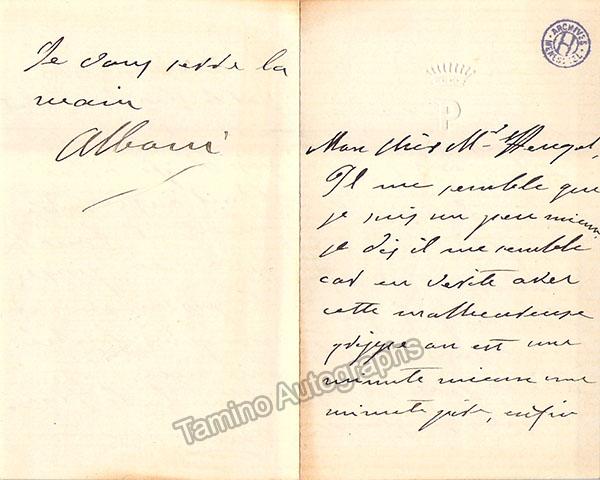 Je vous serre la
main
Albani
ARCHIVES
HEUGEL
H
P
Mon cher Mr Heugel,
Il me semble que
je suis un peu mieux
je dis il me semble
car en verité avec
cette malheureuse
grippe on est une
minute mieux une
minute pis, enfin
Tamino Autographs